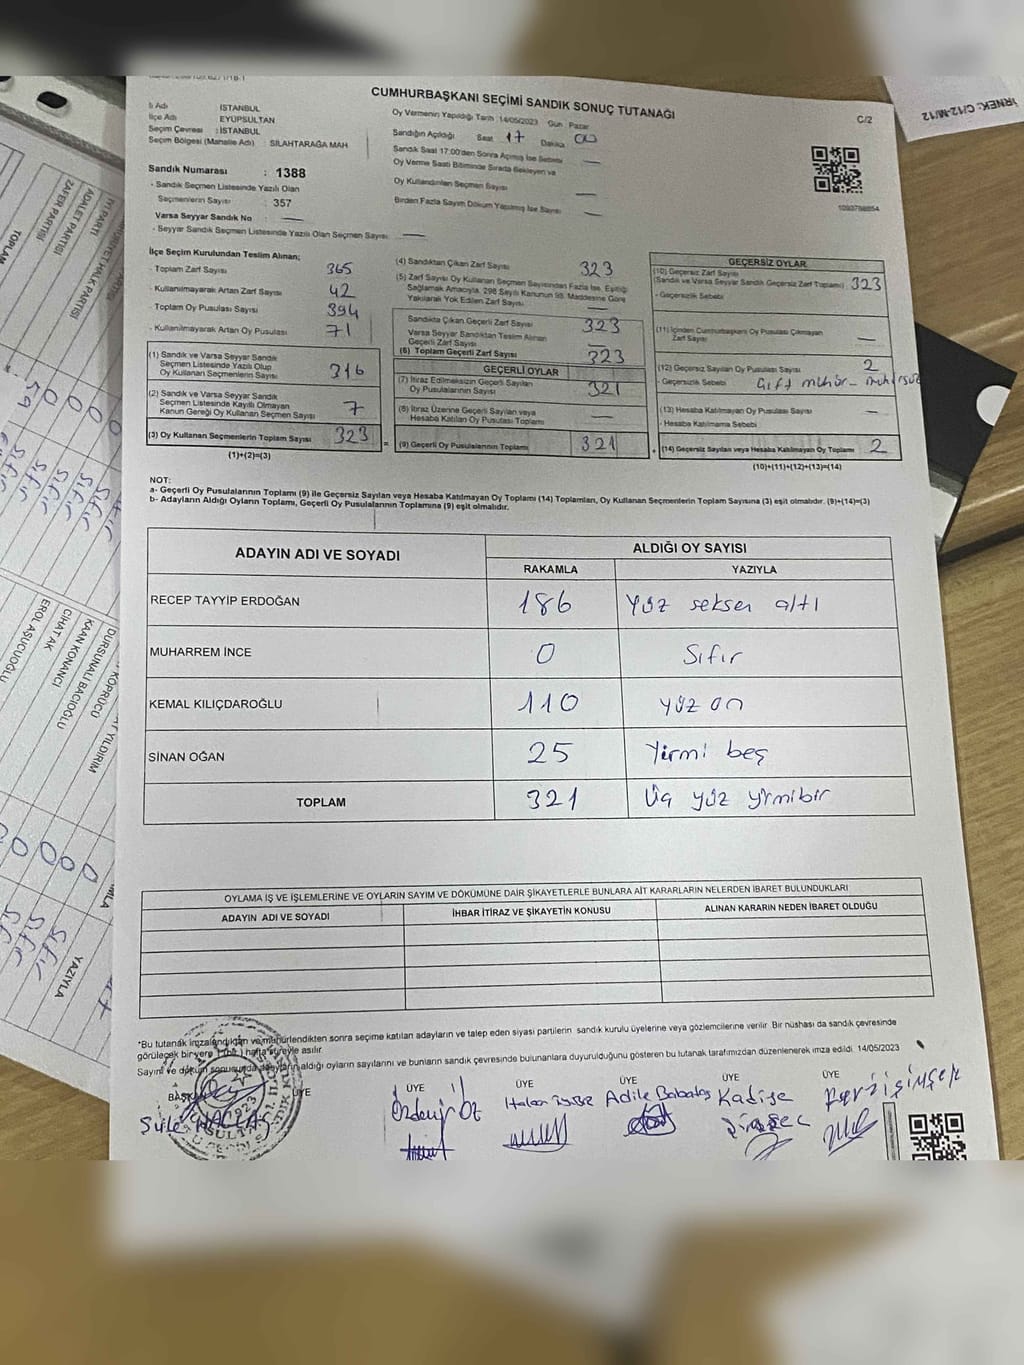 CUMHURBAŞKANI SEÇİMİ SANDIK SONUÇ TUTANAĞI
C/2
ÖRNEK: C/12-M/12
İl Adı : İSTANBUL
İlçe Adı : EYÜPSULTAN
Seçim Çevresi : İSTANBUL
Seçim Bölgesi (Mahalle Adı) : SİLAHTARAĞA MAH
Sandık Numarası : 1388
- Sandık Seçmen Listesinde Yazılı Olan
Seçmenlerin Sayısı : 357
Varsa Seyyar Sandık No : —
- Seyyar Sandık Seçmen Listesinde Yazılı Olan Seçmen Sayısı : —
Oy Vermenin Yapıldığı Tarih : 14/05/2023 Gün : Pazar
Sandığın Açıldığı Saat 17 Dakika 00
Sandık Saat 17:00'den Sonra Açılmış İse Sebebi —
Oy Verme Saati Bitiminde Sırada Bekleyen ve
Oy Kullandırılan Seçmen Sayısı —
Birden Fazla Sayım Döküm Yapılmış İse Sayısı —
1093798854
İlçe Seçim Kurulundan Teslim Alınan;
- Toplam Zarf Sayısı 365
- Kullanılmayarak Artan Zarf Sayısı 42
Toplam Oy Pusulası Sayısı 394
- Kullanılmayarak Artan Oy Pusulası 71
(1) Sandık ve Varsa Seyyar Sandık
Seçmen Listesinde Yazılı Olup
Oy Kullanan Seçmenlerin Sayısı 316
(2) Sandık ve Varsa Seyyar Sandık
Seçmen Listesinde Kayıtlı Olmayan
Kanun Gereği Oy Kullanan Seçmen Sayısı 7
(3) Oy Kullanan Seçmenlerin Toplam Sayısı 323
(1)+(2)=(3)
(4) Sandıktan Çıkan Zarf Sayısı 323
(5) Zarf Sayısı Oy Kullanan Seçmen Sayısından Fazla İse, Eşitliği
Sağlamak Amacıyla, 298 Sayılı Kanunun 98. Maddesine Göre
Yakılarak Yok Edilen Zarf Sayısı
Sandıkta Çıkan Geçerli Zarf Sayısı 323
Varsa Seyyar Sandıktan Teslim Alınan
Geçerli Zarf Sayısı —
(6) Toplam Geçerli Zarf Sayısı 323
GEÇERLİ OYLAR
(7) İtiraz Edilmeksizin Geçerli Sayılan
Oy Pusulalarının Sayısı 321
(8) İtiraz Üzerine Geçerli Sayılan veya
Hesaba Katılan Oy Pusulası Toplamı —
= (9) Geçerli Oy Pusulalarının Toplamı 321
GEÇERSİZ OYLAR
(10) Geçersiz Zarf Sayısı
(Sandık ve Varsa Seyyar Sandık Geçersiz Zarf Toplamı) 323
- Geçersizlik Sebebi
(11) İçinden Cumhurbaşkanı Oy Pusulası Çıkmayan
Zarf Sayısı —
(12) Geçersiz Sayılan Oy Pusulası Sayısı 2
- Geçersizlik Sebebi Çift mühür - mühürsüz
(13) Hesaba Katılmayan Oy Pusulası Sayısı —
- Hesaba Katılmama Sebebi
+ (14) Geçersiz Sayılan veya Hesaba Katılmayan Oy Toplamı 2
(10)+(11)+(12)+(13)=(14)
NOT:
a- Geçerli Oy Pusulalarının Toplamı (9) ile Geçersiz Sayılan veya Hesaba Katılmayan Oy Toplamı (14) Toplamları, Oy Kullanan Seçmenlerin Toplam Sayısına (3) eşit olmalıdır. (9)+(14)=(3)
b- Adayların Aldığı Oyların Toplamı, Geçerli Oy Pusulalarının Toplamına (9) eşit olmalıdır.
ADAYIN ADI VE SOYADI ALDIĞI OY SAYISI
RAKAMLA YAZIYLA
RECEP TAYYİP ERDOĞAN 186 Yüz seksen altı
MUHARREM İNCE 0 Sıfır
KEMAL KILIÇDAROĞLU 110 yüz on
SİNAN OĞAN 25 Yirmi beş
TOPLAM 321 Üç yüz yirmibir
OYLAMA İŞ VE İŞLEMLERİNE VE OYLARIN SAYIM VE DÖKÜMÜNE DAİR ŞİKAYETLERLE BUNLARA AİT KARARLARIN NELERDEN İBARET BULUNDUKLARI
ADAYIN ADI VE SOYADI İHBAR İTİRAZ VE ŞİKAYETİN KONUSU ALINAN KARARIN NEDEN İBARET OLDUĞU
*Bu tutanak imzalandıktan ve mühürlendikten sonra seçime katılan adayların ve talep eden siyasi partilerin sandık kurulu üyelerine veya gözlemcilerine verilir. Bir nüshası da sandık çevresinde
görülecek bir yere 1 (bir) hafta süreyle asılır.
Sayım ve döküm sonucunda adayların aldığı oyların sayılarını ve bunların sandık çevresinde bulunanlara duyurulduğunu gösteren bu tutanak tarafımızdan düzenlenerek imza edildi. 14/05/2023
BAŞKAN ÜYE ÜYE ÜYE ÜYE ÜYE ÜYE
Adile Kadife
İYİ PARTİ
ADALET PARTİSİ
ZAFER PARTİSİ
TOPLAM
DURSUNALİ BACIOĞLU
KAAN KONANCI
CİHAT AK
EROL AŞUCUOĞLU
YAZIYLA
Sıfır
Sıfır
Sıfır